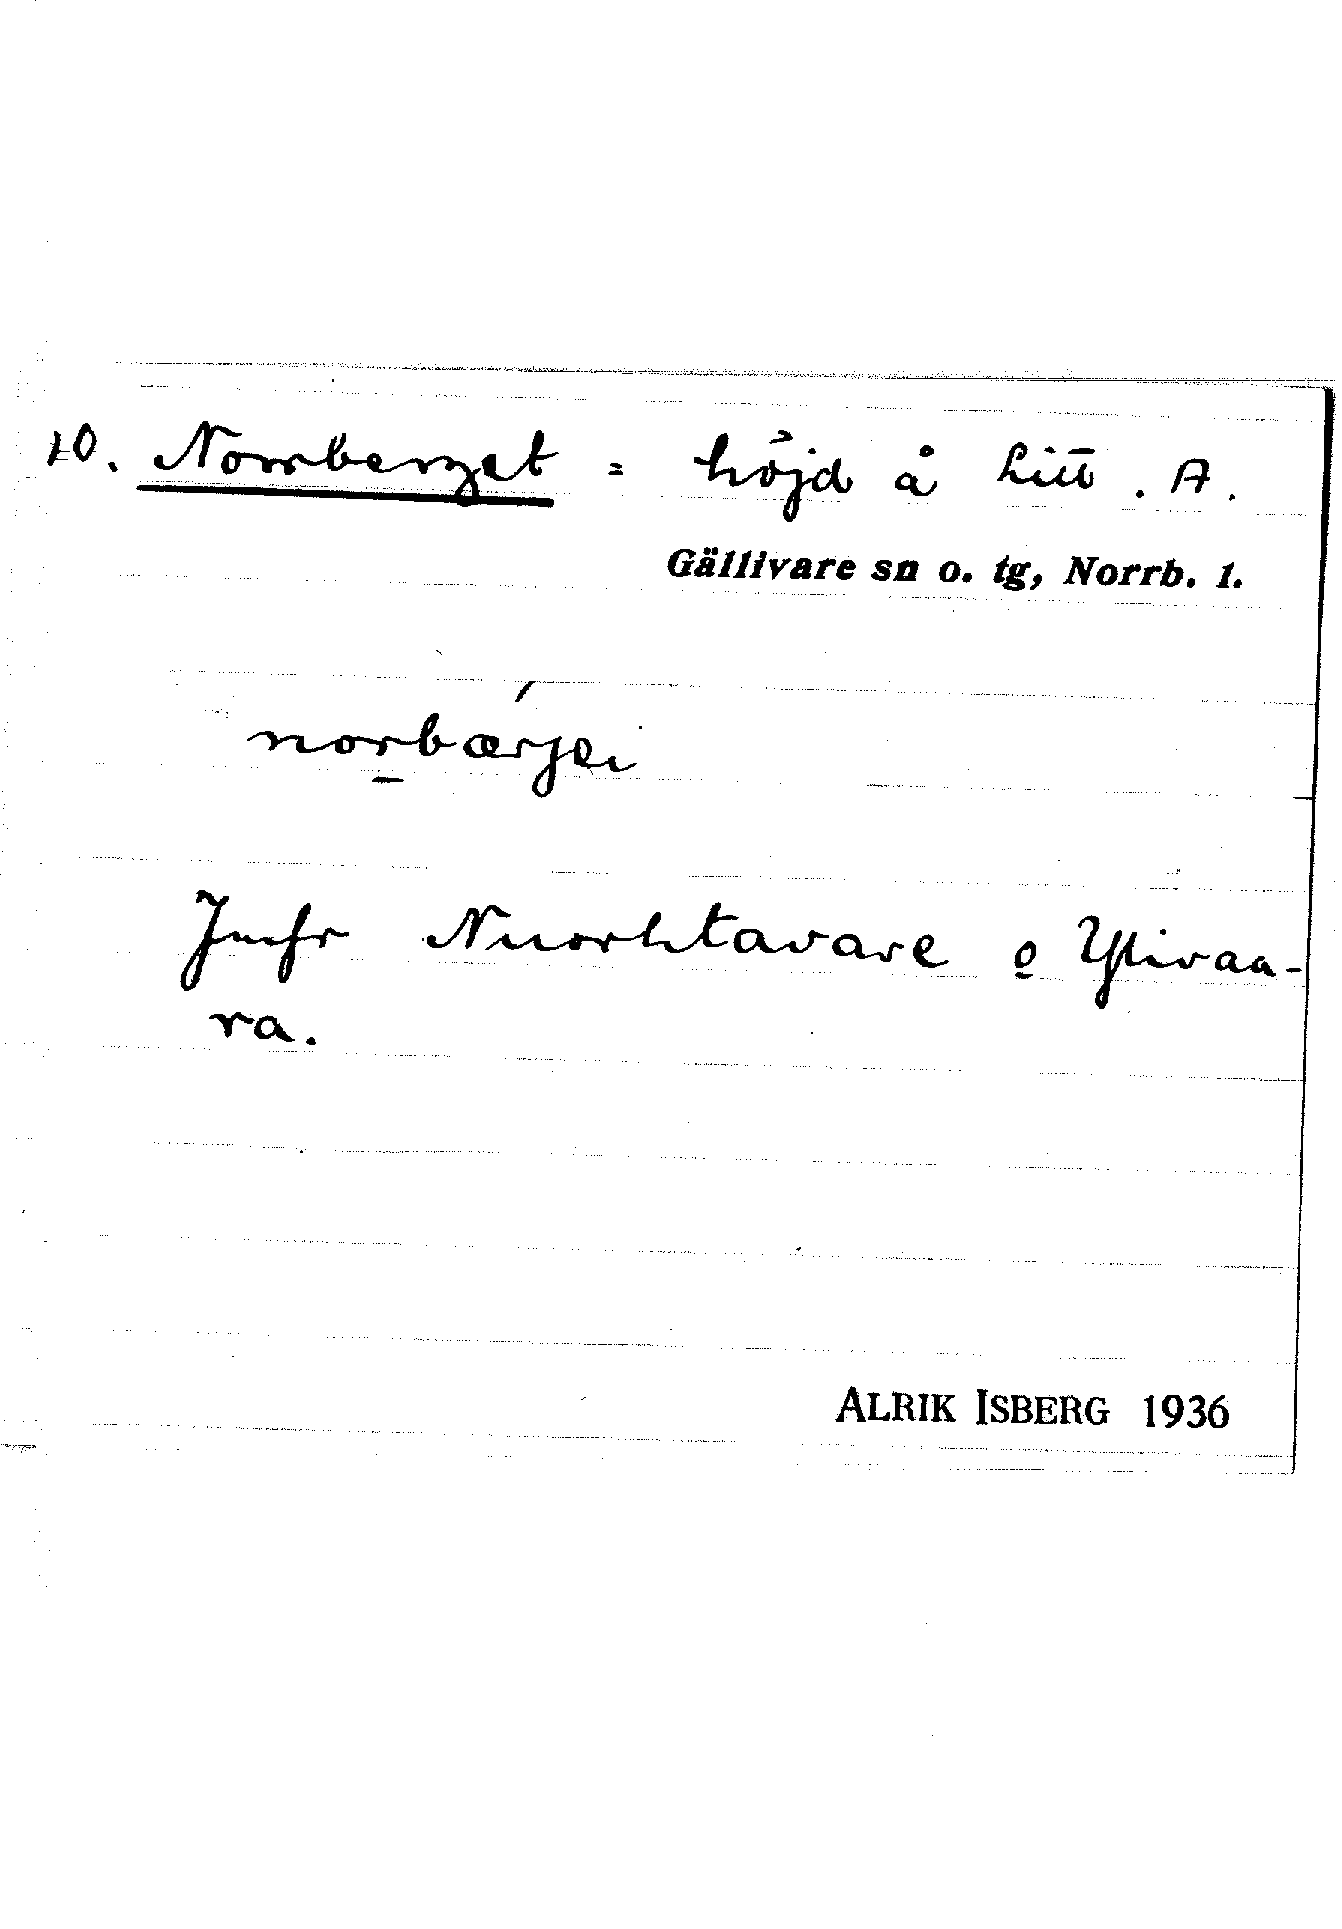 10. Norrberget = höjd å Litt. A.
Gällivare sn o. tg, Norrb. l.
norbærjei
Jmfr Nuorhtavare o Ylivaa-
ra.
ALRIK ISBERG 1936